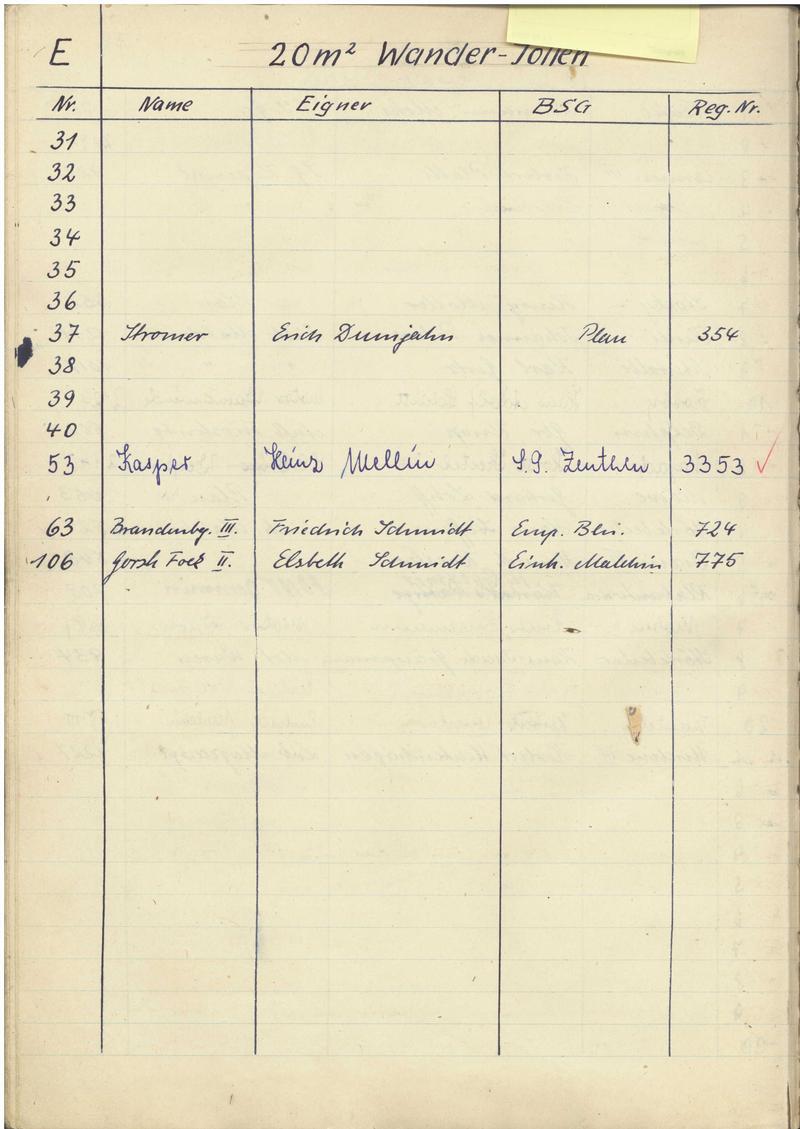 E 20m² Wander-Jollen
Nr. Name Eigner BSG Reg. Nr.
31
32
33
34
35
36
37 Stromer Erich Dumjahn Plau 354
38
39
40
53 Kasper Heinz Mellin S.G. Zeuthen 3353 ✓
63 Brandenbg. III. Friedrich Schmidt Emp. Bln. 724
106 Gorch Fock II. Elsbeth Schmidt Einh. Malchin 775